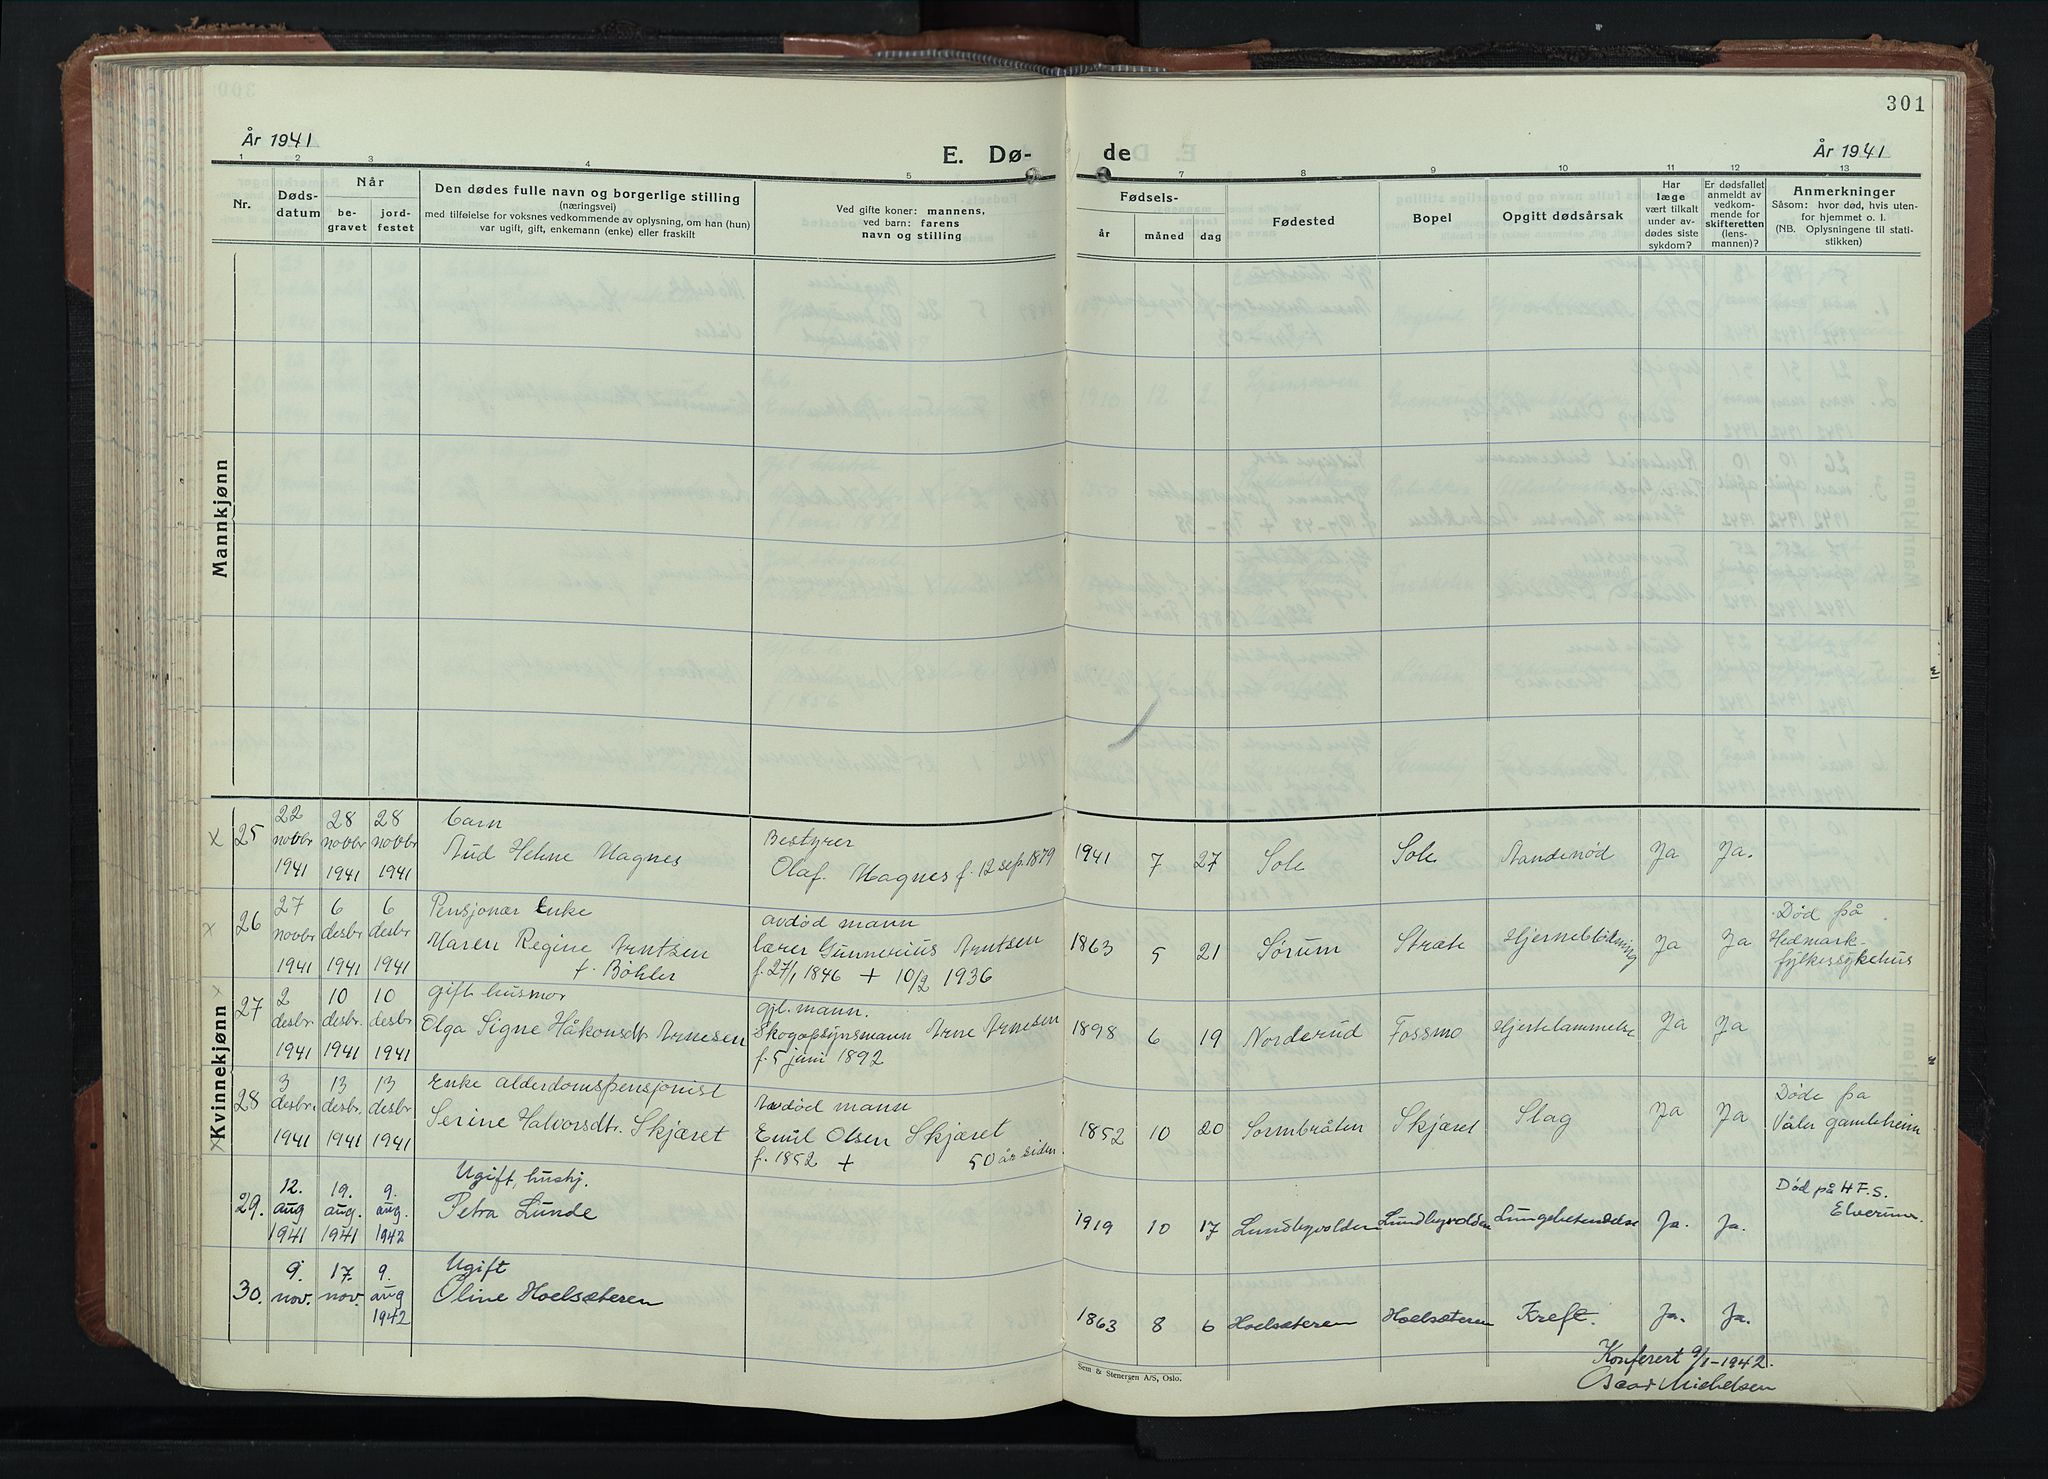 301
År 1941
E. Dø-
de
År 1941
1 2 3 4 5 7 8 9 10 11 12 13
Nr.
Døds-
datum
Når
be-
gravet
jord-
festet
Den dødes fulle navn og borgerlige stilling
(næringsvei)
med tilføielse for voksnes vedkommende av oplysning, om han (hun)
var ugift, gift, enkemann (enke) eller fraskilt
Ved gifte koner: mannens,
ved barn: farens
navn og stilling
Fødsels-
år
måned
dag
Fødested
Bopel
Opgitt dødsårsak
Har
læge
vært tilkalt
under av-
dødes siste
sykdom?
Er dødsfallet
anmeldt av
vedkom-
mende for
skifteretten
(lens-
mannen)?
Anmerkninger
Såsom: hvor død, hvis uten-
for hjemmet o. l.
(NB. Oplysningene til stati-
stikken)
Mannkjønn
Kvinnekjønn
x 25
22 novbr 1941
28 novbr 1941
28 novbr 1941
barn
Aud Helene Hagnes
Bestyrer
Olaf Hagnes f. 12 sep. 1879
1941 7 27 Sole Sole Aandenød Ja Ja.
x 26
27 novbr 1941
6 desbr 1941
6 desbr 1941
Pensjonær Enke
Maren Regine Arntsen
f. Bøhler
avdød mann
lærer Gunnerius Arntsen
f. 27/1 1846 + 10/2 1936
1863 5 21 Sørum Stræte Hjerneblødning Ja Ja
Død på
Hedmark-
fylkessykehus
x 27
2 desbr 1941
10 desbr 1941
10 desbr 1941
gift husmor
Olga Signe Håkonsdt. Arnesen
gjl. mann.
Skogopsynsmann Arne Arnesen
f. 5 juni 1892
1898 6 19 Norderud Fossmo Hjertelammelse Ja Ja
x 28
3 desbr. 1941
13 desbr. 1941
13 desbr 1941
Enke alderdomspensjonist
Serine Halvorsdtr. Skjæret
Avdød mann
Emil Olsen Skjæret
f. 1852 + 50 år siden.
1852 10 20 Sormbråten Skjæret Slag Ja Ja
Døde på
Våler gamleheim
29.
12. aug 1941
19. aug. 1941
9. aug. 1942
Ugift, hushj.
Petra Lunde
1919 10 17 Lundbyvolden Lundbyvolden Lungebetendelse Ja. Ja.
Død på H.F.S.
Elverum.
30.
9. nov.
17. nov.
9. aug 1942
Ugift
Oline Hoelsæteren
1863 8 6 Hoelsæteren Hoelsæteren Kreft. Ja. Ja.
Sem & Stenersen A/S, Oslo.
Konferert 9/1-1942.
Oscar Michelsen